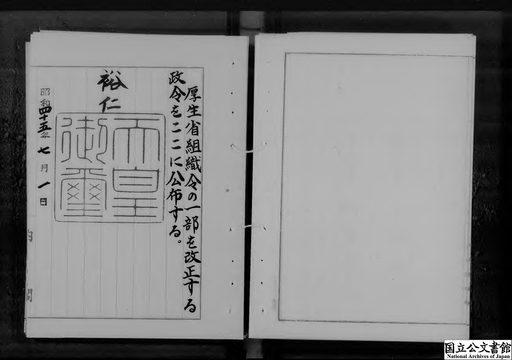 厚生省組織令の一部を改正する
政令をここに公布する。
裕仁
天皇
御璽
昭和四十五年七月一日
国立公文書館
National Archives of Japan